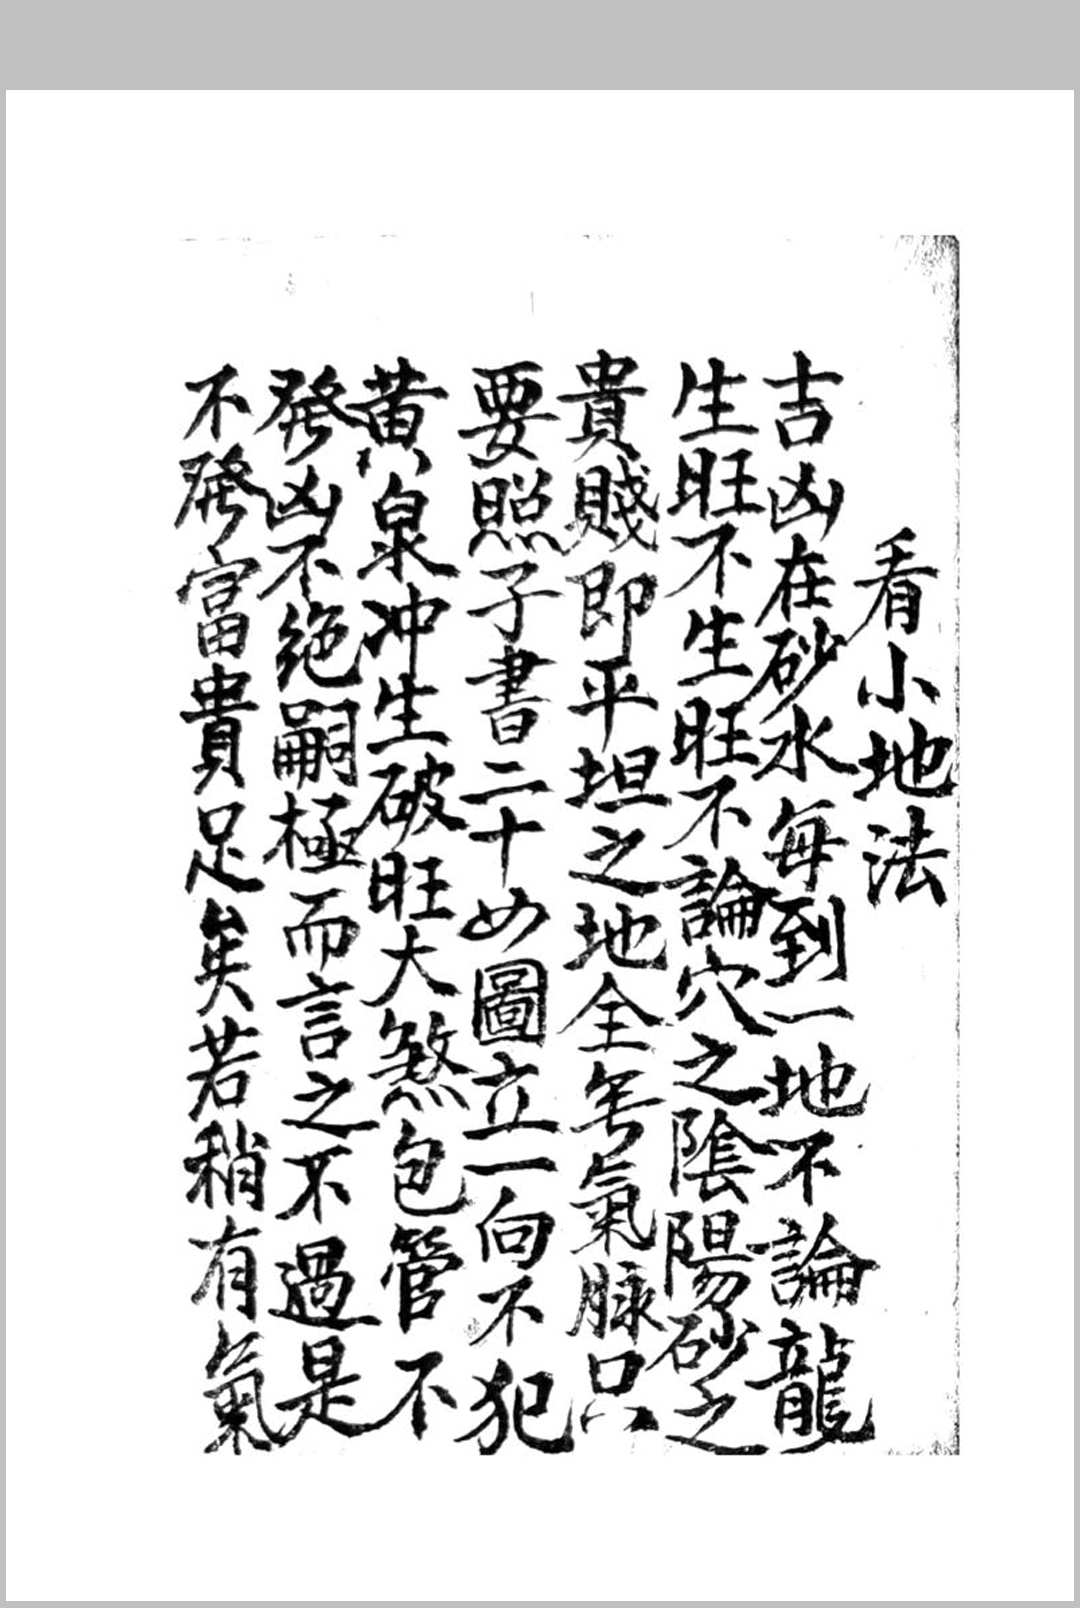 看小地法
吉凶在砂水每到一地不論龍
生旺不生旺不論穴之陰陽砂之
貴賤即平坦之地全無氣脉只
要照子書二十四圖立一向不犯
黄泉冲生破旺大煞包管不
發凶不絶嗣極而言之不過是
不發富貴足矣若稍有氣